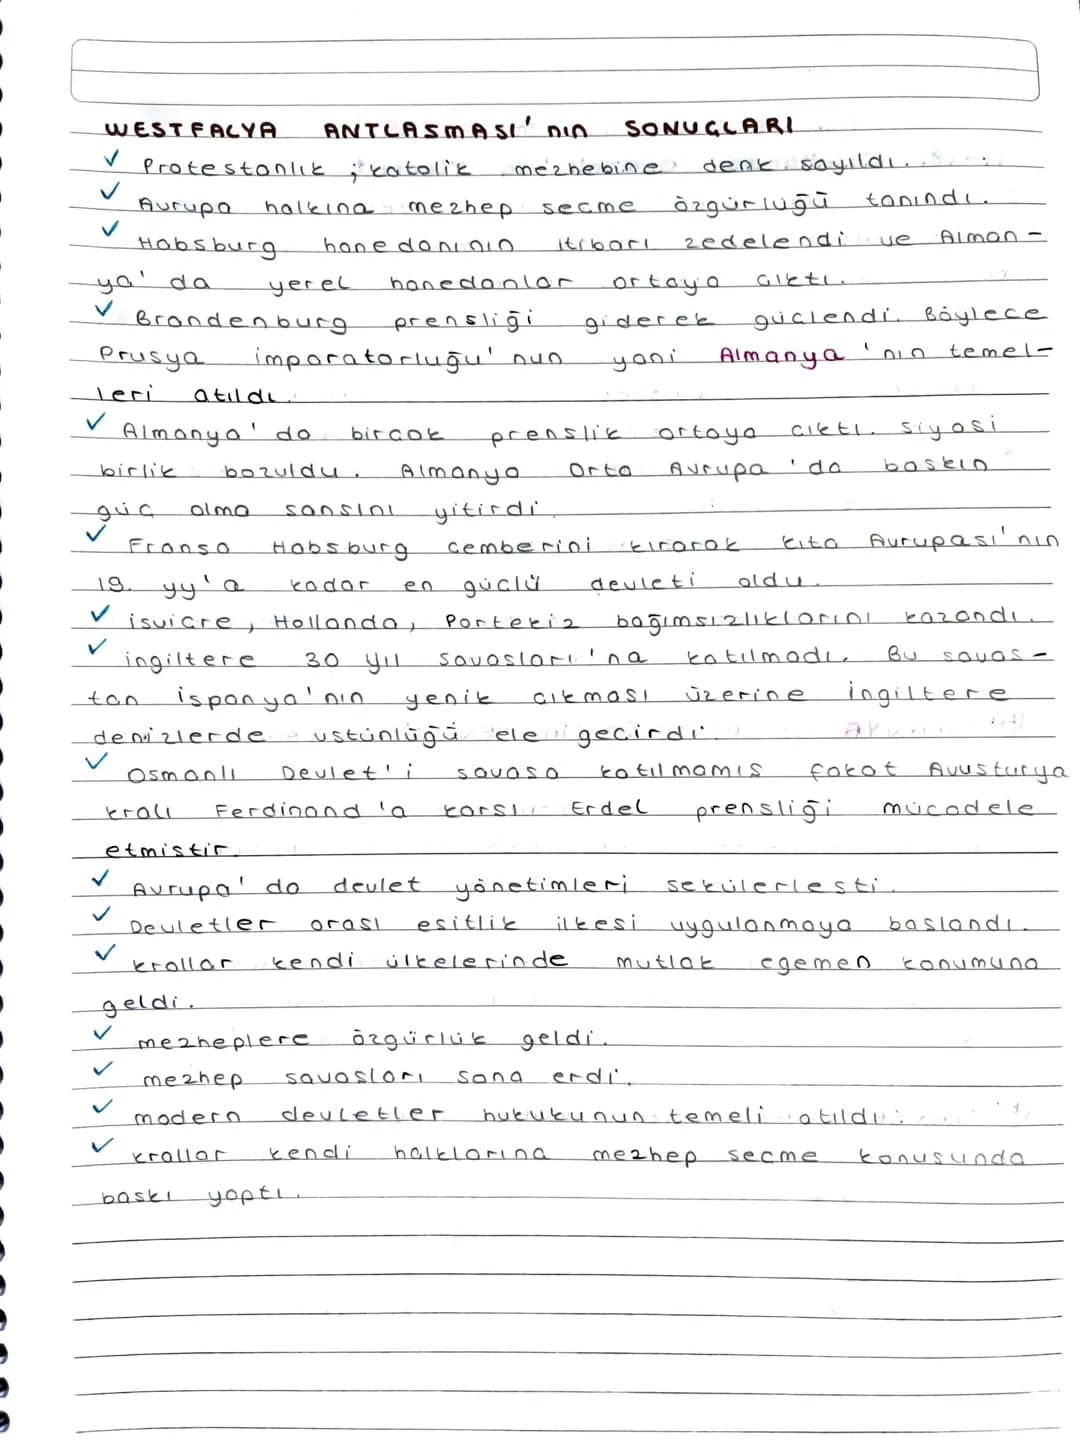 WESTFALYA ANTLASMASI' nın SONUCLARI
✓ Protestanlık ; katolik mezhebine denk sayıldı.
✓ Avrupa halkına mezhep secme özgürlüğü tanındı.
✓ Habsburg hanedanının itibarı zedelendi ve Alman-
ya' da yerel hanedanlar ortaya cıktı.
✓ Brandenburg prensliği giderek güclendi. Böylece
Prusya imparatorluğu' nun yani Almanya 'nın temel-
leri atıldı.
✓ Almanya' da bircok prenslik ortaya cıktı. siyasi
birlik bozuldu. Almanya Orta Avrupa 'da baskın
güc olma sansını yitirdi.
✓ Fransa Habsburg cemberini kırarak kıta Avrupası'nın
19. yy'a kadar en güclü devleti oldu.
✓ isvicre, Hollanda, Portekiz bağımsızlıklarını kazandı.
✓ ingiltere 30 yıl Savasları'na katılmadı. Bu savas-
tan ispanya'nın yenik cıkması üzerine ingiltere
denizlerde üstünlüğü ele gecirdi.
✓ Osmanlı Devlet'i savasa katılmamıs fakat Avusturya
kralı Ferdinand 'a karsı Erdel prensliği mücadele
etmistir.
✓ Avrupa' da devlet yönetimleri sekülerlesti.
✓ Devletler arası esitlik ilkesi uygulanmaya baslandı.
✓ krallar kendi ülkelerinde mutlak egemen konumuna
geldi.
✓ mezheplere özgürlük geldi.
✓ mezhep savasları sona erdi.
✓ modern devletler hukukunun temeli atıldı.
✓ krallar kendi halklarına mezhep secme konusunda
baskı yaptı.